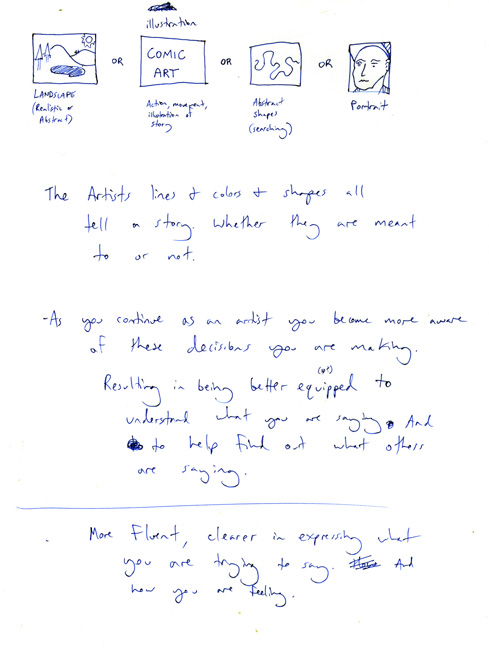 illustration
COMIC
ART
OR
OR
OR
LANDSCAPE
(Realistic or
Abstract)
Action, movement,
illustration of
story
Abstract
shapes
(searching)
Portrait
The Artists lines & colors & shapes all
tell a story. Whether they are meant
to or not.
-As you continue as an artist you become more aware
of these decisions you are making.
Resulting in being better equipped to
understand what you are saying. And
to help find out what others
are saying.
More Fluent, clearer in expressing what
you are trying to say. And
how you are feeling.